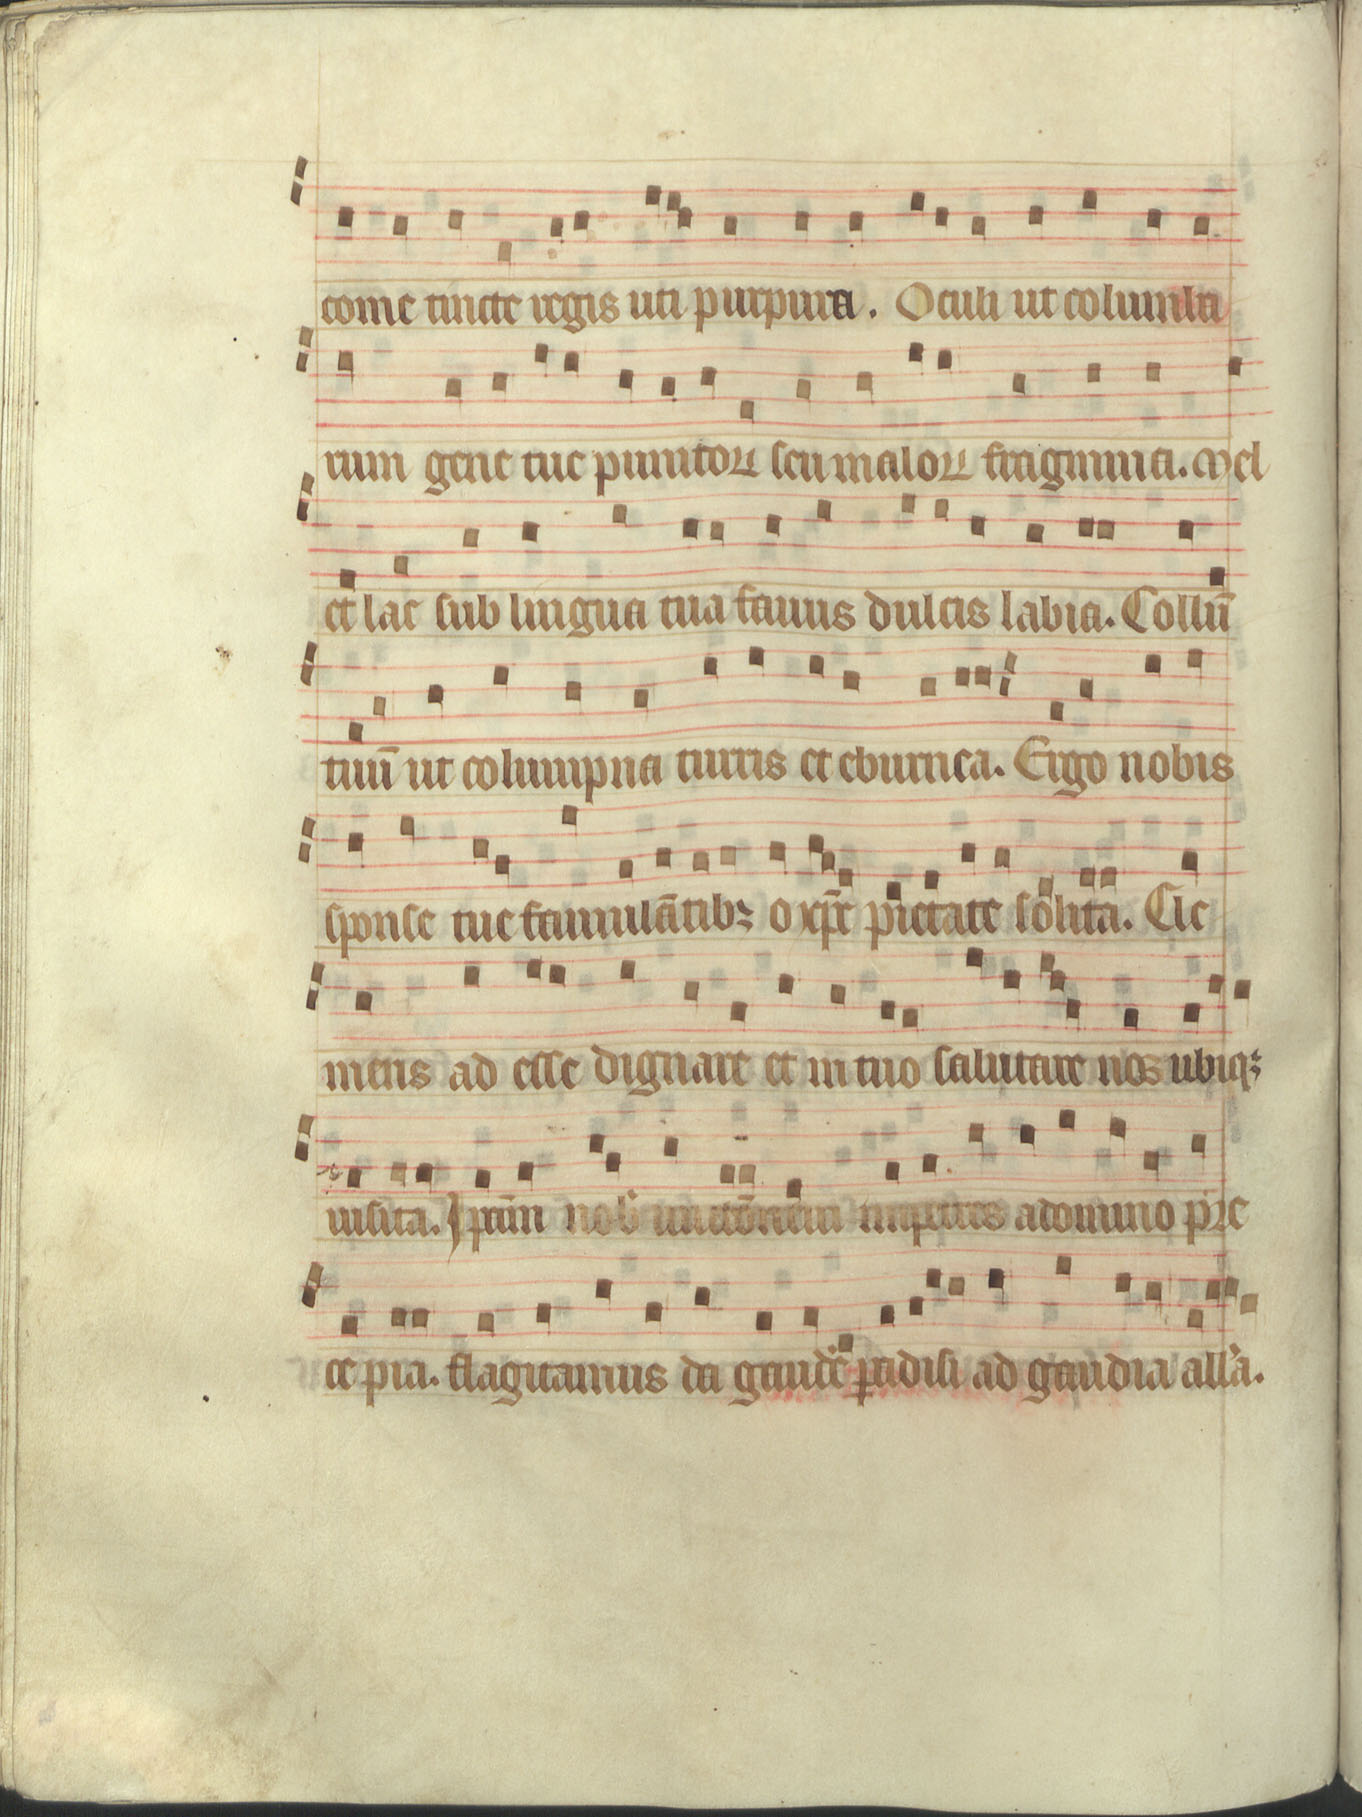 come tincte regis uti purpura. Oculi ut columba
rum gene tue punicoꝝ seu maloꝝ fragmina. Mel
et lac sub lingua tua fauus dulcis labia. Collū
tuū ut columpna turris et eburnea. Ergo nobis
sponse tue famulātibꝫ o xp̄e pietate solita. Cle
mens ad esse dignare et in tuo salutare nos ubiqꝫ
uisita. Ip̄am nob̄ impetres a domino p̄re
ce pia. flagitamus da gaudē ꝑadisi ad gaudia allā.